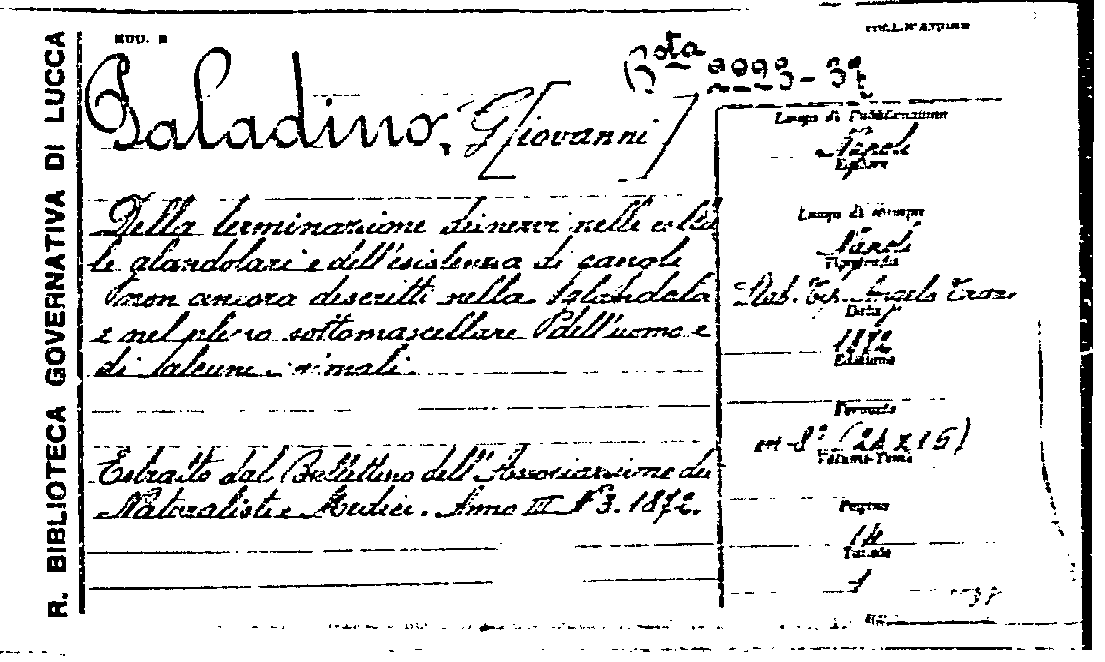 R. BIBLIOTECA GOVERNATIVA DI LUCCA
MOD. B
Bta 2223-37
Paladino, G[iovanni]
Della terminazione dei nervi nelle cellu
le glandolari e dell'esistenza di gangli
non ancora descritti nella glandola
e nel plesso sottomascellare dell'uomo e
di alcuni animali.
Estratto dal Bullettino dell'Associazione dei
Naturalisti e Medici. Anno III N° 3. 1872.
Luogo di Pubblicazione
Napoli
Editore
Luogo di stampa
Napoli
Tipografia
Stab. Tip. Angelo Trani
Data
1872
Edizione
Formato
in-8° (24x16)
Volume-Tomo
Pagine
14
Tavole
1